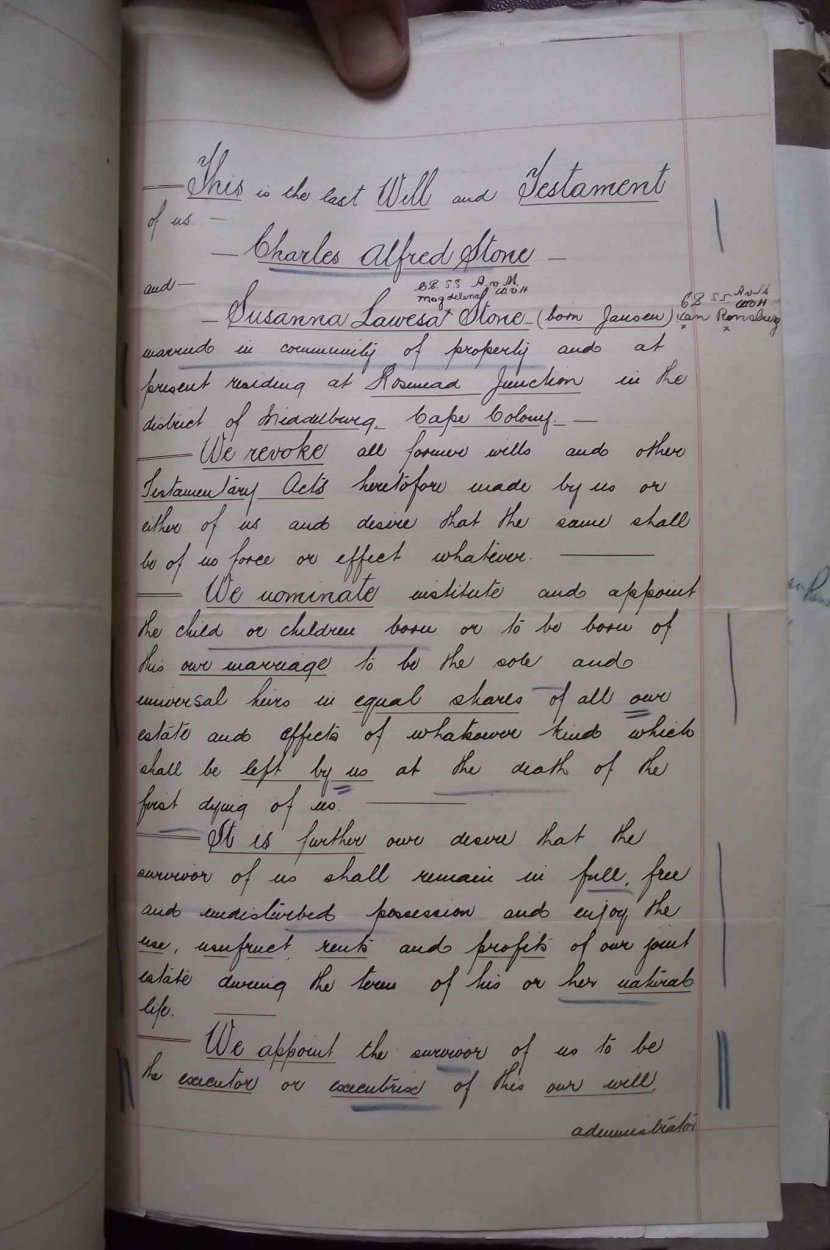 This is the last Will and Testament
of us. —
— Charles Alfred Stone —
and —
Magdelena
— Susanna Lawesa Stone (born Jansen) van Rensburg
married in community of property and at
present residing at Rosmead Junction in the
district of Middelburg Cape Colony. —
We revoke all former wills and other
Testamentary Acts heretofore made by us or
either of us and desire that the same shall
be of no force or effect whatever.
We nominate institute and appoint
the child or children born or to be born of
this our marriage to be the sole and
universal heirs in equal shares of all our
estate and effects of whatsoever kind which
shall be left by us at the death of the
first dying of us.
It is further our desire that the
survivor of us shall remain in full, free
and undisturbed possession and enjoy the
use, usufruct, rents and profits of our joint
estate during the term of his or her natural
life.
We appoint the survivor of us to be
the executor or executrix of this our will,
administrator